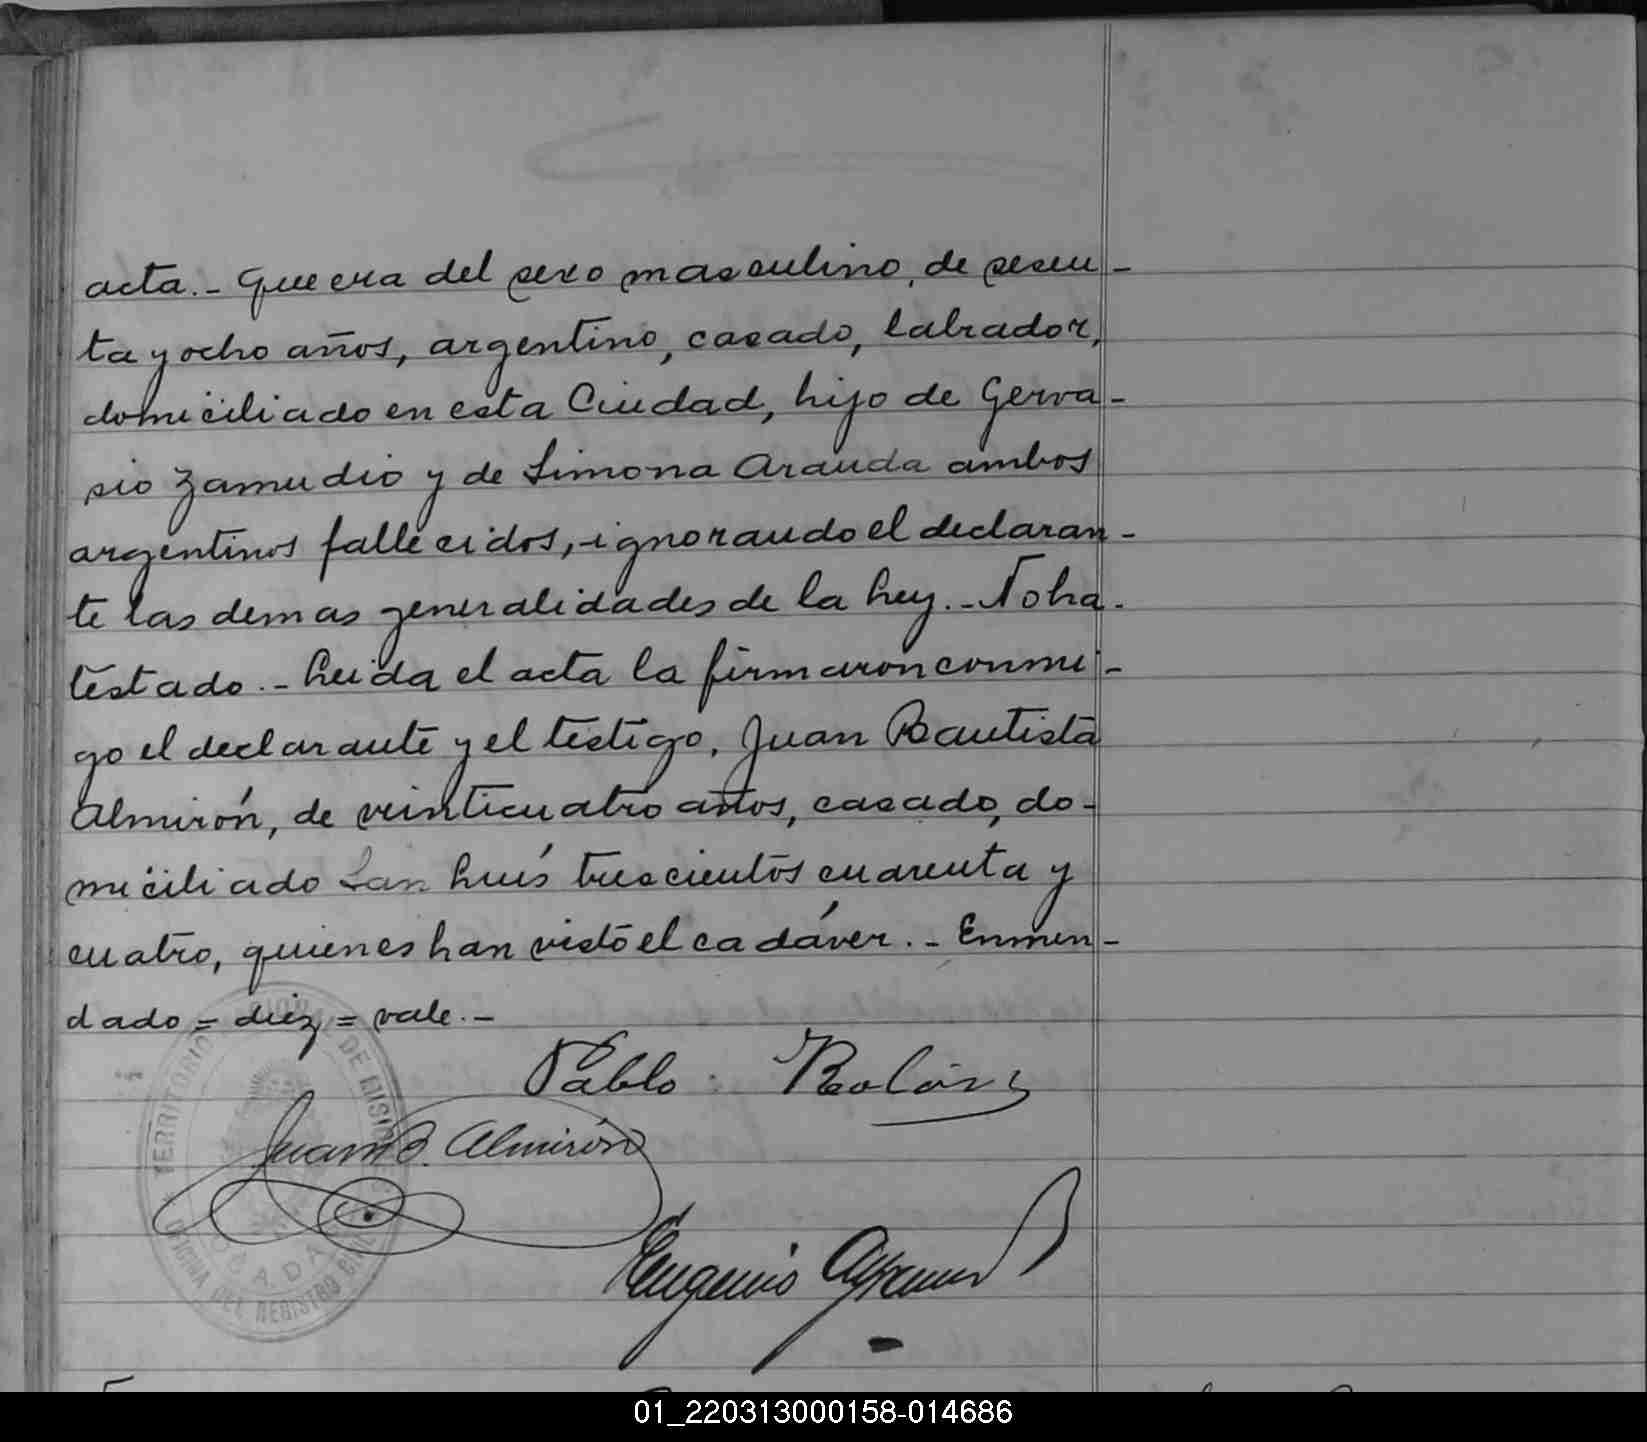 acta.- Que era del sexo masculino, de sesen-
ta y ocho años, argentino, casado, labrador,
domiciliado en esta Ciudad, hijo de Gerva-
sio Zamudio y de Simona Aranda ambos
argentinos fallecidos, ignorando el declaran-
te las demas generalidades de la Ley.- No ha
testado.- Leida el acta la firmaron conmi-
go el declarante y el testigo, Juan Bautista
Almirón, de veinticuatro años, casado, do-
miciliado San Luís trescientos cuarenta y
cuatro, quienes han visto el cadáver.- Enmen-
dado = diez = vale.-
Pablo Rolón
Juan B. Almirón
Eugenio
TERRITORIO DE MISIONES
POSADAS
OFICINA DEL REGISTRO CIVIL
01_220313000158-014686